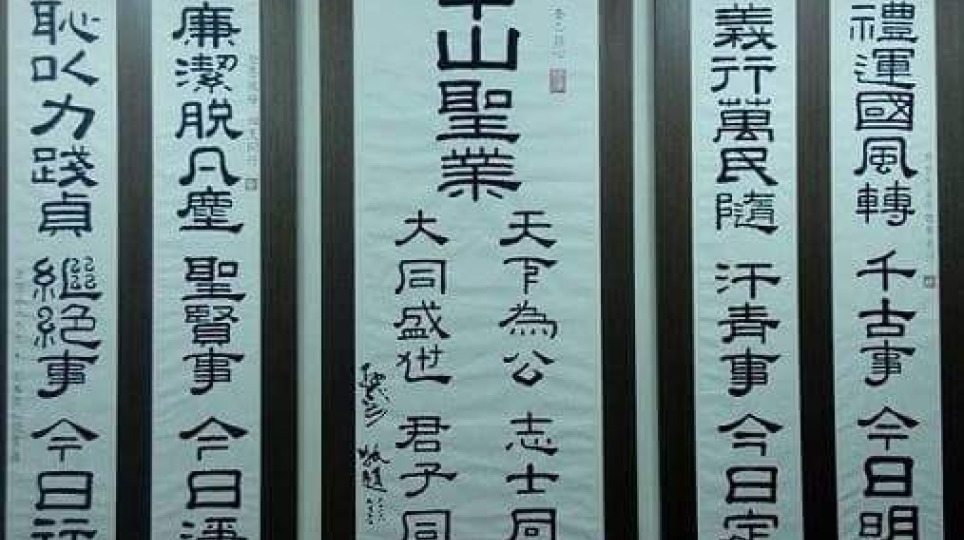 禮運國風轉 千古事 今日明
義行萬民隨 汗青事 今日定
中山聖業
天下為公 志士同
大同盛世 君子同
廉潔脫凡塵 聖賢事 今日
恥以力踐貞 繼絕事 今日行